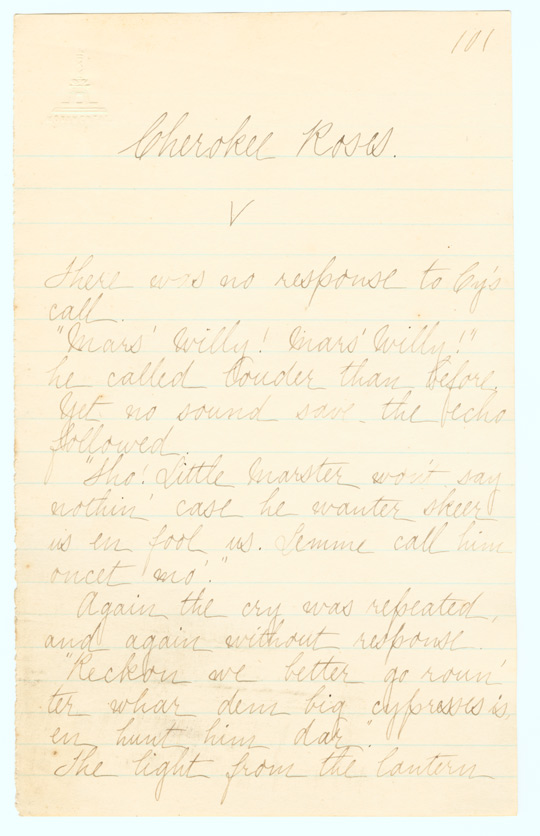 101
Cherokee Roses.
V
There was no response to Cy's
call.
"Mars' Willy! Mars' Willy!"
he called louder than before.
Yet no sound save the echo
followed.
"Sho! Little Marster won't say
nothin' case he wanter skeer
us en fool us. Lemme call him
oncet mo'."
Again the cry was repeated,
and again without response.
"Reckon we better go roun'
ter whar dem big cypresses is,
en hunt him dar."
The light from the lantern